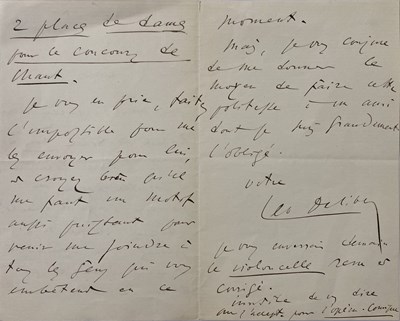 2 places de dames
pour le concours de
Chant.
Je vous en prie, faites
l'impossible pour me
les envoyer pour lui,
et croyez bien qu'il
me faut un motif
aussi puissant pour
venir me joindre à
tous les gens qui vous
embêtent en ce
moment.
Mais, je vous conjure
de me donner le
moyen de faire cette
politesse à un ami
dont je suis grandement
l'obligé.
votre
Leo Delibes
Je vous enverrai demain
le violoncelle revu &
corrigé.
inutile de dire
pour l'opéra-Comique